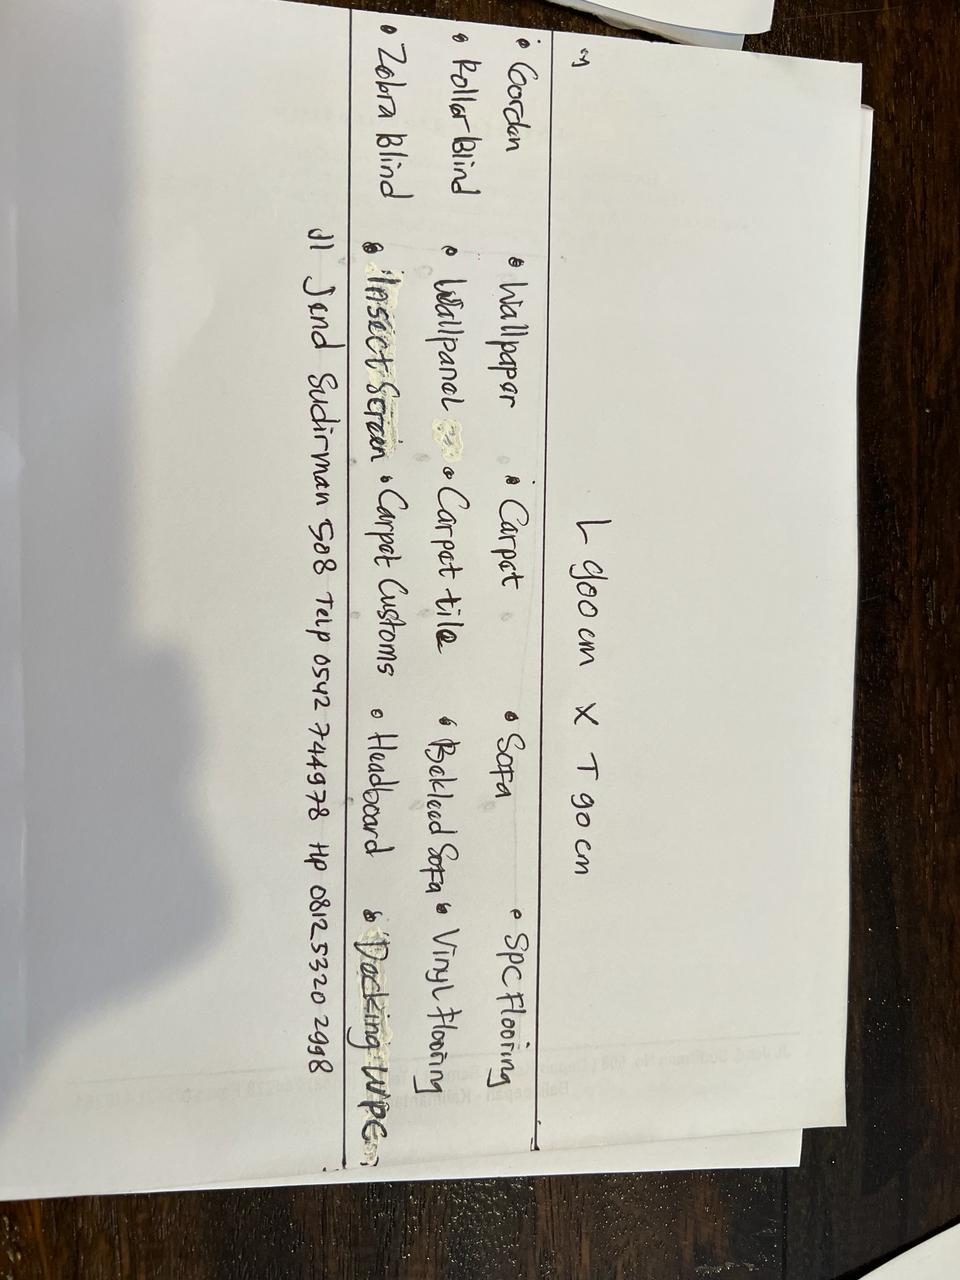 3)
L 900 cm X T 90 cm
• Gordan • Wallpaper • Carpet • Sofa • SPC Flooring
• Rollar Blind • Wallpanal • Carpet tile • Baklead Sofa • Vinyl Flooring
• Zabra Blind • Insect Screen • Carpet Customs • Headboard • Dacking WPC
Jl Jend Sudirman 508 Telp 0542 744978 HP 0812 5320 2998